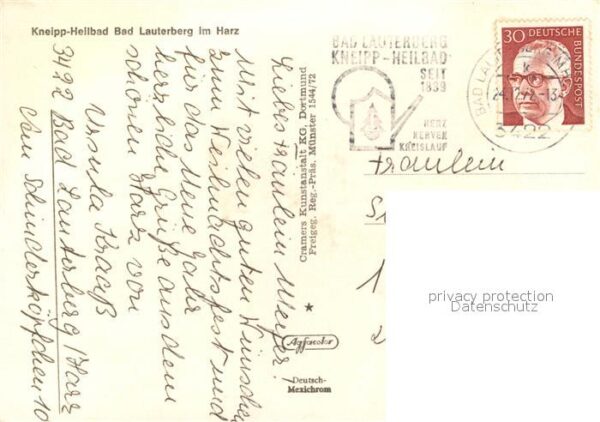 Kneipp-Heilbad Bad Lauterberg im Harz
Liebes Fräulein Meyer!
Mit vielen guten Wünschen
zum Weihnachtsfest und
für das Neue Jahr
herzliche Grüße aus dem
schönen Harz von
Ursula Kraaß
3422 Bad Lauterberg/Harz
Am Schinderköpfchen 10
Cramers Kunstanstalt KG, Dortmund
Freigeg. Reg.-Präs. Münster 1544/72
Agfacolor
Deutsch-
Mexichrom
BAD LAUTERBERG
KNEIPP-HEILBAD
SEIT
1839
HERZ
NERVEN
KREISLAUF
3422
30 DEUTSCHE
BUNDESPOST
Fräulein
privacy protection
Datenschutz